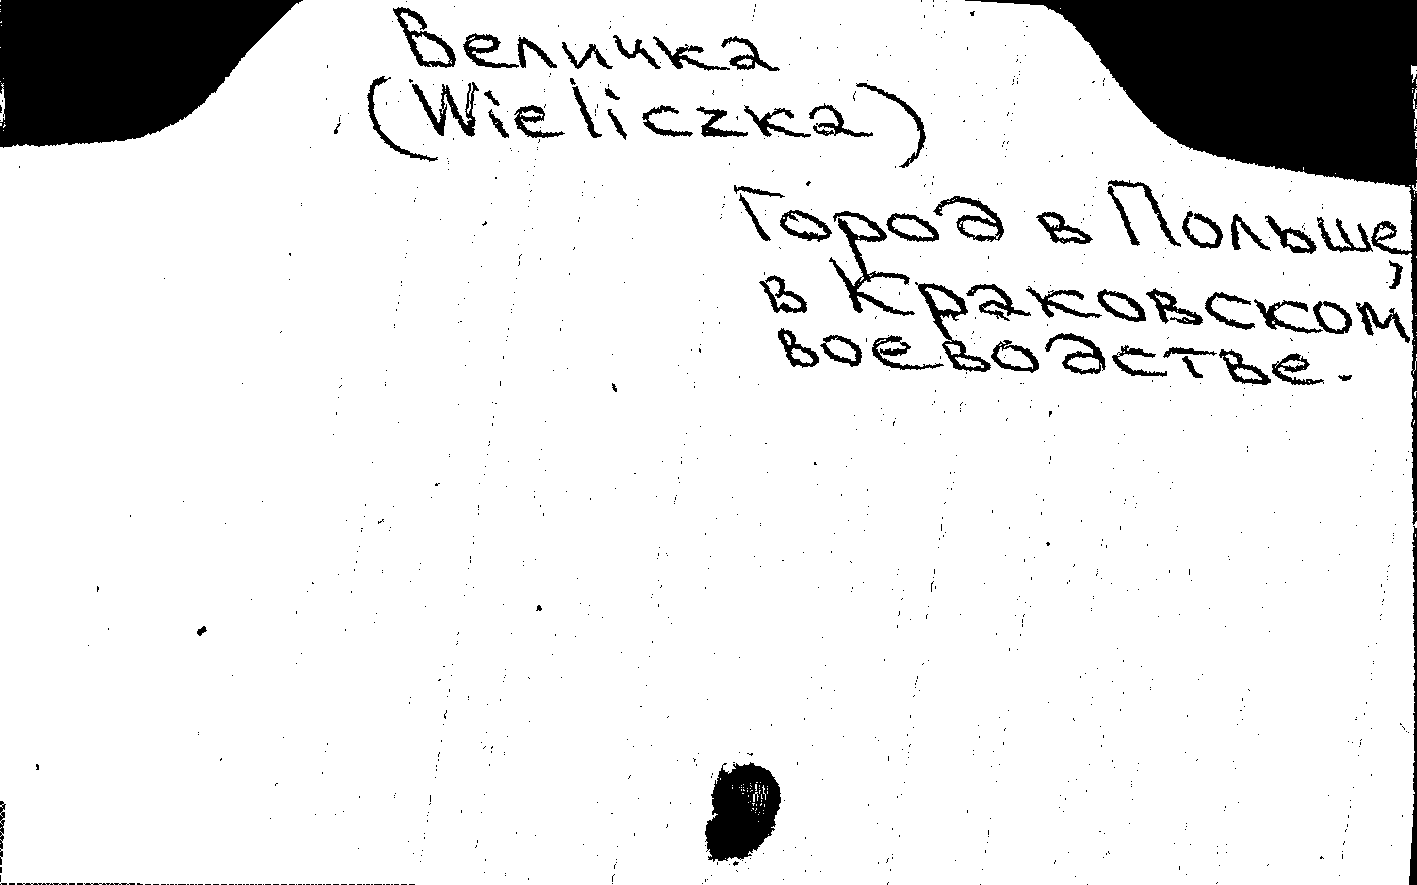 Величка
(Wieliczka)
Город в Польше,
в Краковском
воеводстве.